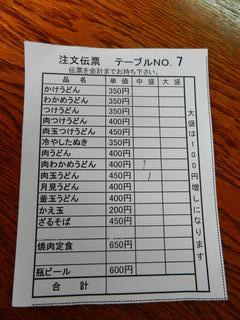 注文伝票 テーブルNO. 7
伝票を会計までお持ち下さい。
品名 単価 中盛 大盛
かけうどん 350円
わかめうどん 350円
つけうどん 350円
肉つけうどん 400円
肉玉つけうどん 450円
冷やしたぬき 350円
肉うどん 400円
肉わかめうどん 400円 1
肉玉うどん 450円 1
月見うどん 400円
釜玉うどん 400円
かえ玉 200円
ざるそば 450円
焼肉定食 650円
瓶ビール 600円
合計
大盛は100円増しになります